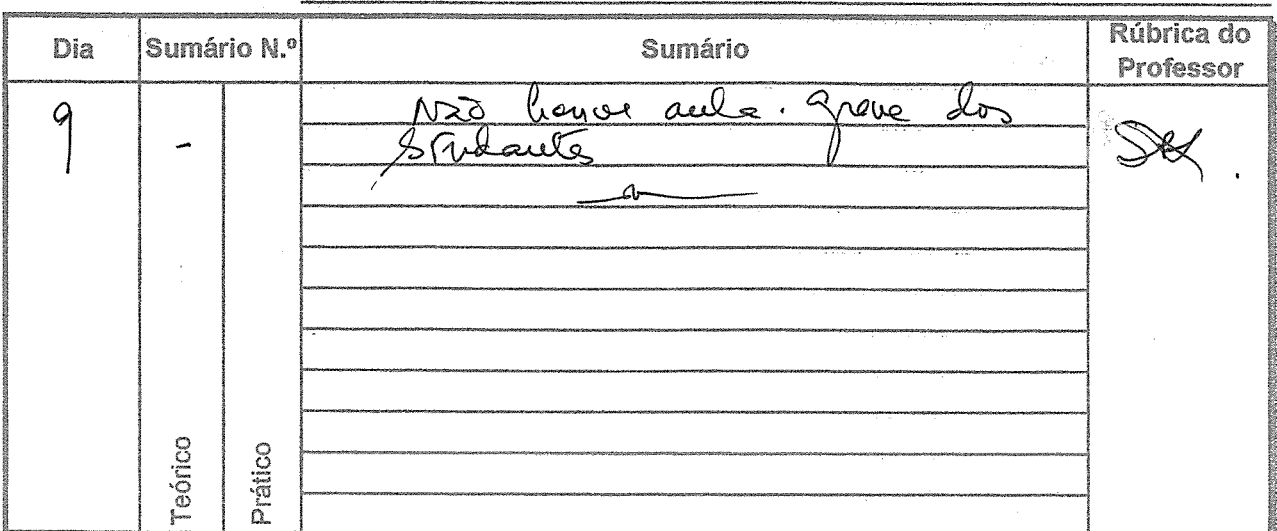 Dia Sumário N.º Sumário Rúbrica do Professor
9 - Não houve aula. Greve dos
Estudantes
Teórico
Prático